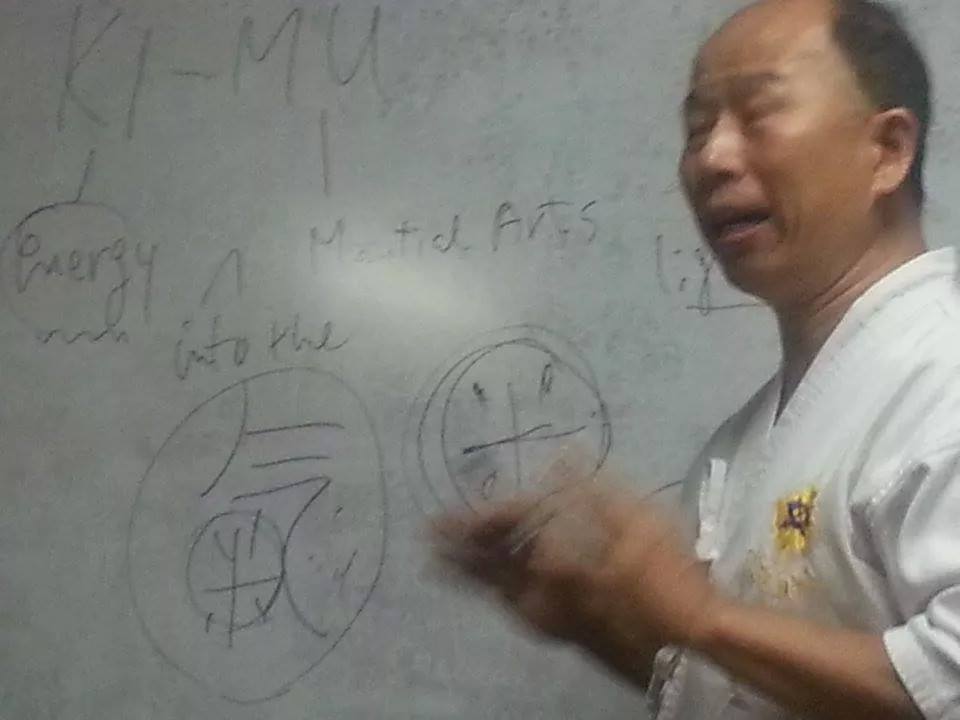 KI-MU
energy Martial Arts
into the
氣